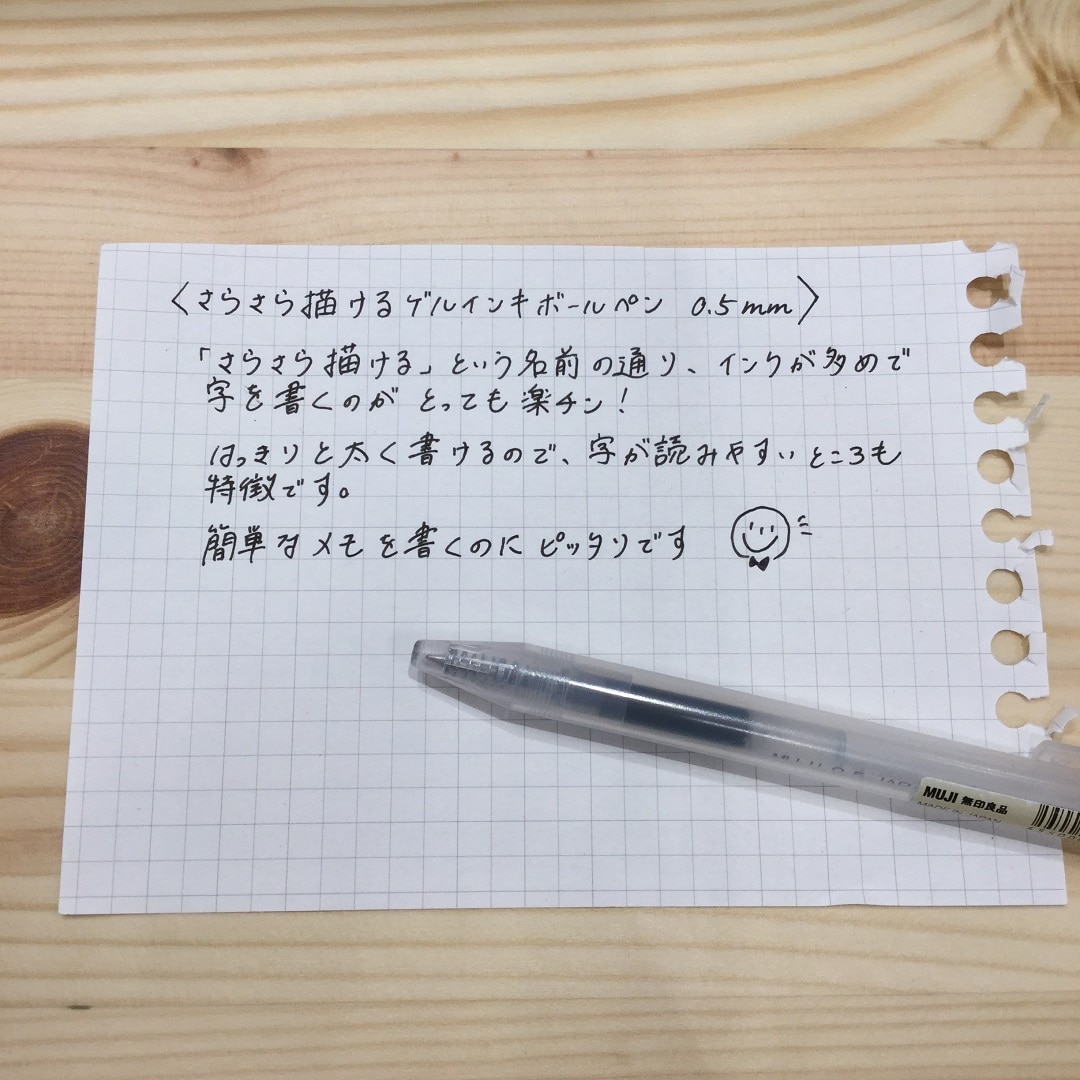 〈さらさら描けるゲルインキボールペン 0.5mm〉
「さらさら描ける」という名前の通り、インクが多めで
字を書くのが とっても楽チン！
はっきりと太く書けるので、字が読みやすいところも
特徴です。
簡単なメモを書くのにピッタリです
MUJI 無印良品
MADE IN JAPAN